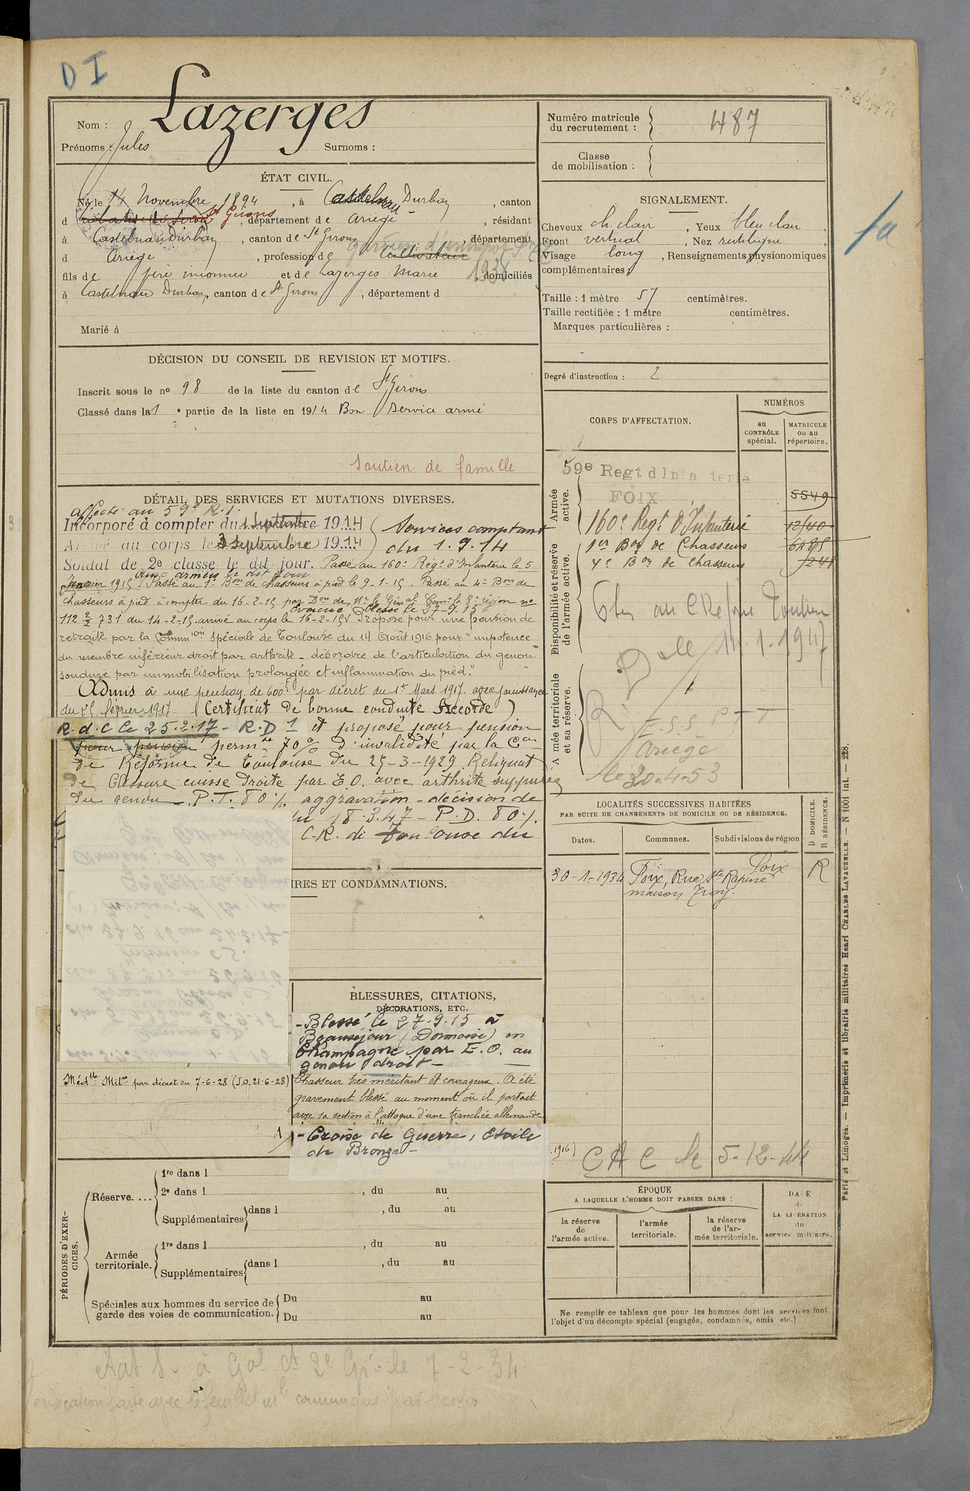 D I
Nom : Lazerges
Prénoms : Jules Surnoms :
ÉTAT CIVIL.
Né le Novembre 1894, à Castelnau Durban, canton
d St Girons, département de Ariège, résidant
à Castelnau Durban, canton de St Girons, département
d Ariège, profession de Cultivateur
1938
fils de père inconnu et de Lazerges Marie, domiciliés
à Castelnau Durban, canton de St Girons, département d
Marié à
DÉCISION DU CONSEIL DE REVISION ET MOTIFS.
Inscrit sous le no 98 de la liste du canton de St Girons
Classé dans la 1e partie de la liste en 1914 Bon Service armé
Soutien de famille
DÉTAIL DES SERVICES ET MUTATIONS DIVERSES.
affecté au 59e R.I.
Incorporé à compter du 1 Septembre 1914 Services comptant
Arrivé au corps le 3 Septembre 1914 du 1.9.14
Soldat de 2e classe le dit jour. Passé au 160e Régt d'Infanterie le 5
Janvier 1915. Passé au 1er Bon de chasseurs à pied le 9-1-15. Passé au 4e Bon de
chasseurs à pied à compter du 16-2-15 par Don de Mr le Général Comt la 8e région no
112 2/2 731 du 14-2-15 arrivé au corps le 16-2-15. Evacué Blessé le 27-9-15. Proposé pour une pension de
retraite par la Commion Spéciale de Toulouse du 14 Août 1916 pour "impotence
du membre inférieur droit par arthrite - désaxation de l'articulation du genou
soudure par immobilisation prolongée et inflammation du pied."
Admis à une pension de 600f par décret du 1er Mars 1917 avec jouissance
du février 1917. (Certificat de bonne conduite Accordé)
R.d.C le 25.2.17 - R.D 1 et proposé pour pension
perm.te 70% d'invalidité par la Con
de Réforme de Toulouse du 25-3-1929 Reliquat
de blessure cuisse droite par E.O. avec arthrite suppurée
du genou - P.T. 80% aggravation - décision de
du 18.3.47 - P.D. 80%.
C.R. de Toulouse du
IRES ET CONDAMNATIONS.
BLESSURES, CITATIONS,
DÉCORATIONS, ETC.
- Blessé le 27.9.15 à
Beauséjour (Dormoise) en
Champagne par E.O. au
genou droit -
Chasseur très méritant et courageux. A été
gravement blessé au moment où il partait
avec sa section à l'attaque d'une tranchée allemande
- Croix de Guerre, Etoile
de Bronze -
Méd'lle Milre par décret du 7-6-28 (J.O. 21-6-28)
PÉRIODES D'EXERCICES.
Réserve.... 1re dans l
2e dans l , du au
Supplémentaires dans l , du au
Armée territoriale. 1re dans l , du au
Supplémentaires dans l , du au
Spéciales aux hommes du service de garde des voies de communication. Du au
Du au
7-2-34
Numéro matricule du recrutement : 487
Classe de mobilisation :
SIGNALEMENT.
Cheveux ch clair, Yeux bleu clair
Front vertical, Nez rectiligne
Visage long, Renseignements physionomiques
complémentaires
Taille : 1 mètre 57 centimètres.
Taille rectifiée : 1 mètre centimètres.
Marques particulières :
Degré d'instruction : 2
CORPS D'AFFECTATION.
NUMÉROS
au CONTRÔLE spécial.
MATRICULE ou au répertoire.
Armée active.
59e Regt d'Infanterie
FOIX 5549
160e Régt d'Infanterie
1er Bon de Chasseurs
4e Bon de Chasseurs
Disponibilité et réserve de l'armée active.
le 11.1.1947
Armée territoriale et sa réserve.
Ariège
le 20-4-53
LOCALITÉS SUCCESSIVES HABITÉES
PAR SUITE DE CHANGEMENTS DE DOMICILE OU DE RÉSIDENCE.
Dates. Communes. Subdivisions de région
D DOMICILE. R RÉSIDENCE.
30-1-1934 Foix, Rue Ste Foix R
maison
CAC le 5-12-44
ÉPOQUE
A LAQUELLE L'HOMME DOIT PASSER DANS :
la réserve de l'armée active.
l'armée territoriale.
la réserve de l'armée territoriale.
DATE de LA LIBÉRATION du service militaire.
Ne remplir ce tableau que pour les hommes dont les services font
l'objet d'un décompte spécial (engagés, condamnés, omis etc.)
Paris et Limoges. — Imprimerie et librairie militaires Henri CHARLES-LAVAUZELLE. — N 1001 int. — 228.